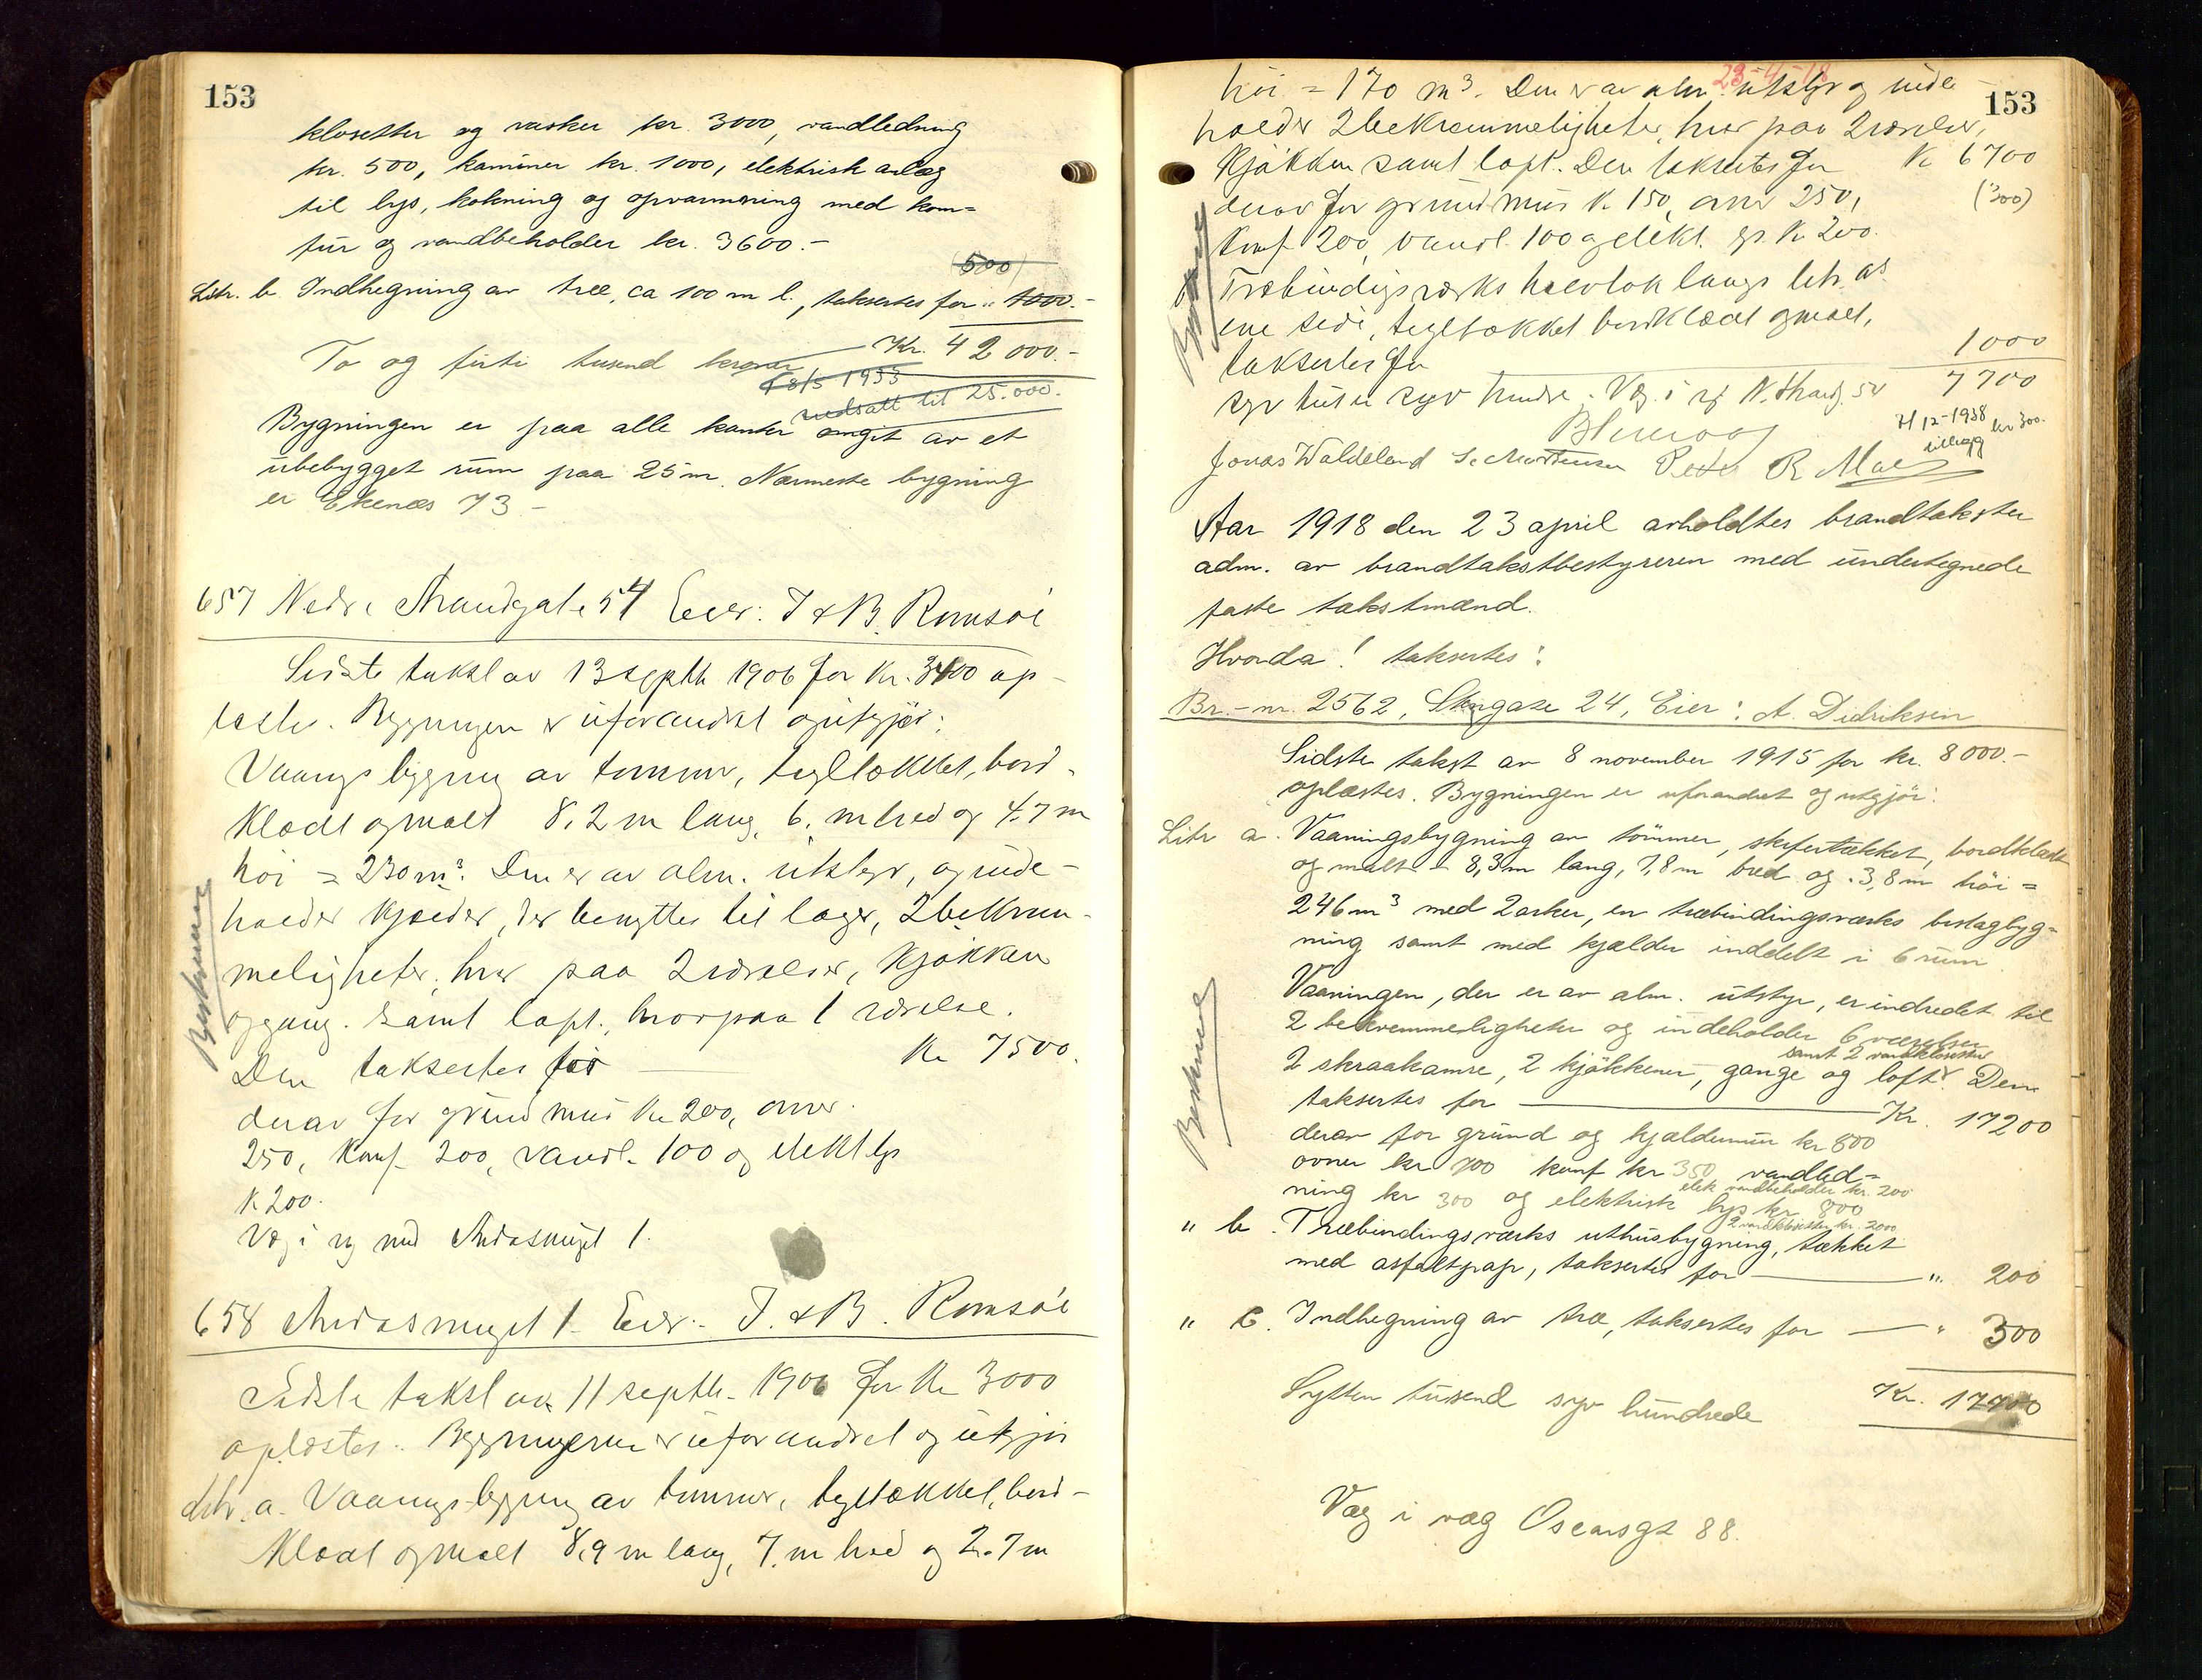 153
klosetter og vasker kr. 3000, vandledning
kr. 500, kaminer kr. 1000, elektrisk anlæg
til lys, kokning og opvarmning med kom=
fur og vandbeholder kr. 3600.-
(500)
Litr. b. Indhegning av træ, ca 100 m l., taksertes for " 1000.-
Kr. 42000.-
To og firti tusend kroner
18/5 1933
nedsatt til 25.000.-
Bygningen er paa alle kanter omgit av et
ubebygget rum paa 25 m. Nærmeste bygning
er Ekenæs 73 -
657 Nedre Strandgate 54 Eier: J & B. Romsöe
Sidste takst av 13 septbr 1906 for Kr. 3400 op-
læstes. Bygningen er uforandret og utgjör:
Vaaningsbygning av tömmer, tegltækket, bord-
klædt og malt 8,2 m lang, 6, m bred og 4,7 m
höi = 230 m³. Den er av alm. utstyr, og inde-
holder kjælder, der benyttes til lager, 2 bekvem-
meligheter, hver paa 2 værelser, kjökken
opgang. samt loft, hvorpaa 1 værelse.
Den taksertes for Kr 7500.
derav for grundmur Kr 200, ovner.
250, Komf. 200, vandl. 100 og elekt lys
K 200.
Væg i væg med Andasmuget 1.
Beskrives
658 Andasmuget 1. Eier:- J. & B. Romsöe
Sidste takst av 11 septbr. 1906 for Kr 3000
oplæstes. Bygningerne er uforandret og utgjör
Litr. a. Vaaningsbygning av tömmer, tegltækket, bord-
klædt og malt 8,9 m lang, 7, m bred og 2,7 m
23-4-18
153
höi = 170 m³. Den er av alm. utstyr og inde
holder 2 bekvemmeligheter, hver paa 2 værelser,
kjökken samt loft. Den taksertes for Kr 6700
derav for grundmur K. 150, ovner 250, (300)
Komf 200, vandl. 100 og elekt. lys. Kr 200.
Træbindingsværks halvtak langs litr. as
ene side, tegltækket bordklædt og malt,
taksertes for 1000
syv tusen syv hundre. Væg i væg N. Strandg. 54 7700
7/12-1938 tillegg kr 300.
Jonas Waldeland S. Mortensen Peder R. Mæ
Aar 1918 den 23 april avholdtes brandtakster
adm. av brandtakstbestyreren med undertegnede
faste takstmænd.
Hvorda! taksertes:
Br.-nr. 2562, Skugate 24, Eier: A. Didriksen
Sidste takst av 8 november 1915 for kr. 8000.-
oplæstes. Bygningen er uforandret og utgjör:
Litr a. Vaaningsbygning av tömmer, skifertækket, bordklædt
og malt - 8,3 m lang, 7,8 m bred og 3,8 m höi =
246 m³ med 2 arker, en træbindingsværks beslagbyg=
ning samt med kjælder inddelt i 6 rum
Vaaningen, der er av alm. utstyr, er indredet til
2 bekvemmeligheter og indeholder 6 værelser
samt 2 vandklosetter
2 skraakamre, 2 kjökkener, gange og loft. Den
taksertes for Kr. 17200
derav for grund og kjældermur kr 800
ovner kr 700 komf kr 350 vandled=
elek vandbeholder kr. 200
ning kr 300 og elektrisk lys kr. 800
2 vandklosetter kr. 2000
" b. Træbindingsværks uthusbygning, tækket
med asfaltpap, taksertes for " 200
" c. Indhegning av træ, taksertes for " 300
Sytten tusend syv hundrede Kr. 17700
Væg i væg Oscarsgt 88.
Beskrives